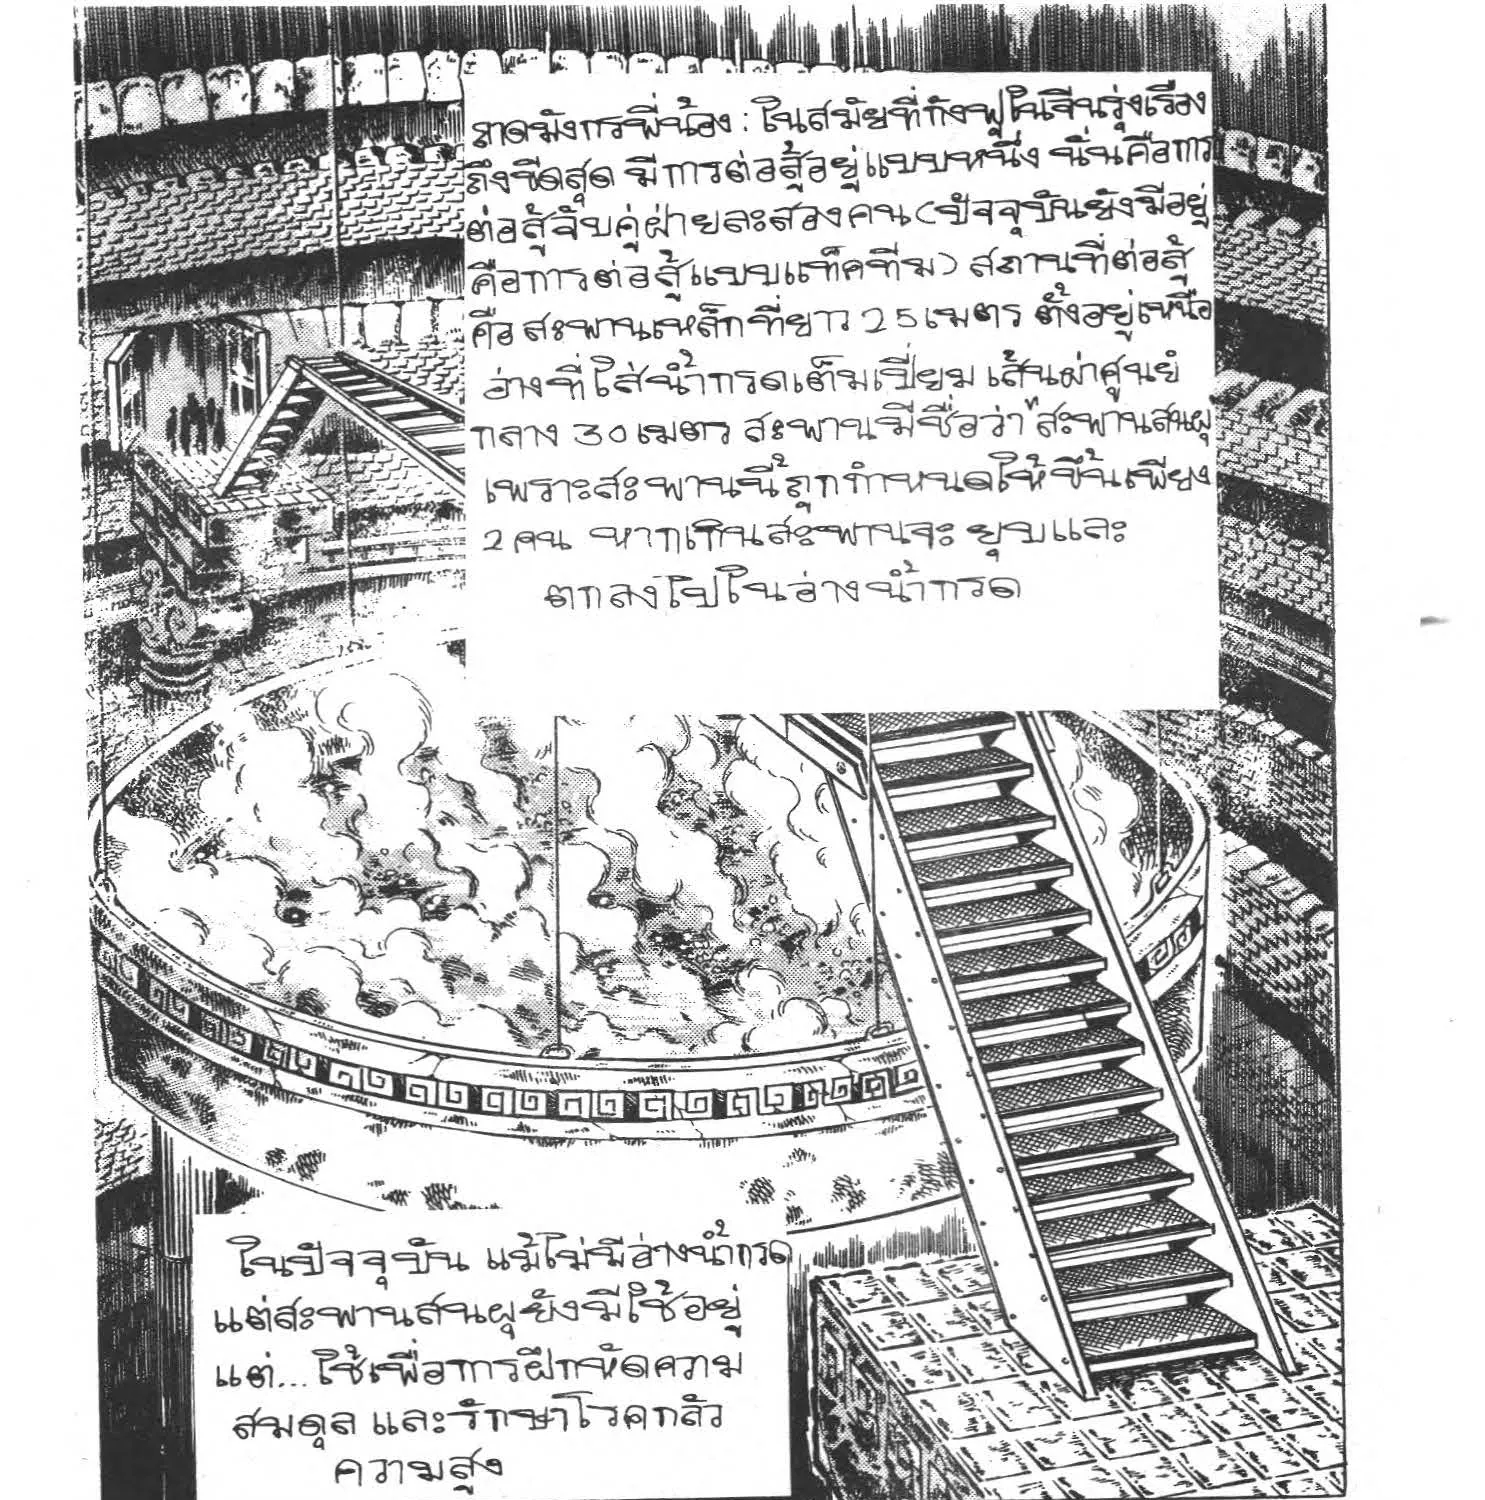 ภาดมังกรพี่น้อง : ในสมัยที่กังฟูในจีนรุ่งเรือง
ถึงขีดสุด มีการต่อสู้อยู่แบบหนึ่ง นั่นคือการ
ต่อสู้จับคู่ฝ่ายละสองคน (ปัจจุบันยังมีอยู่
คือการต่อสู้แบบแท็คทีม) สถานที่ต่อสู้
คือ สะพานเหล็กที่ยาว 25 เมตร ตั้งอยู่เหนือ
อ่างที่ใส่น้ำกรดเต็มเปี่ยม เส้นผ่าศูนย์
กลาง 30 เมตร สะพานมีชื่อว่า "สะพานสนผุ
เพราะสะพานนี้ถูกกำหนดให้ขึ้นเพียง
2 คน หากเกินสะพานจะ ยุบและ
ตกลงไปในอ่างน้ำกรด
ในปัจจุบัน แม้ไม่มีอ่างน้ำกรด
แต่สะพานสนผุยังมีใช้อยู่
แต่... ใช้เพื่อการฝึกหัดความ
สมดุล และรักษาโรคกลัว
ความสูง